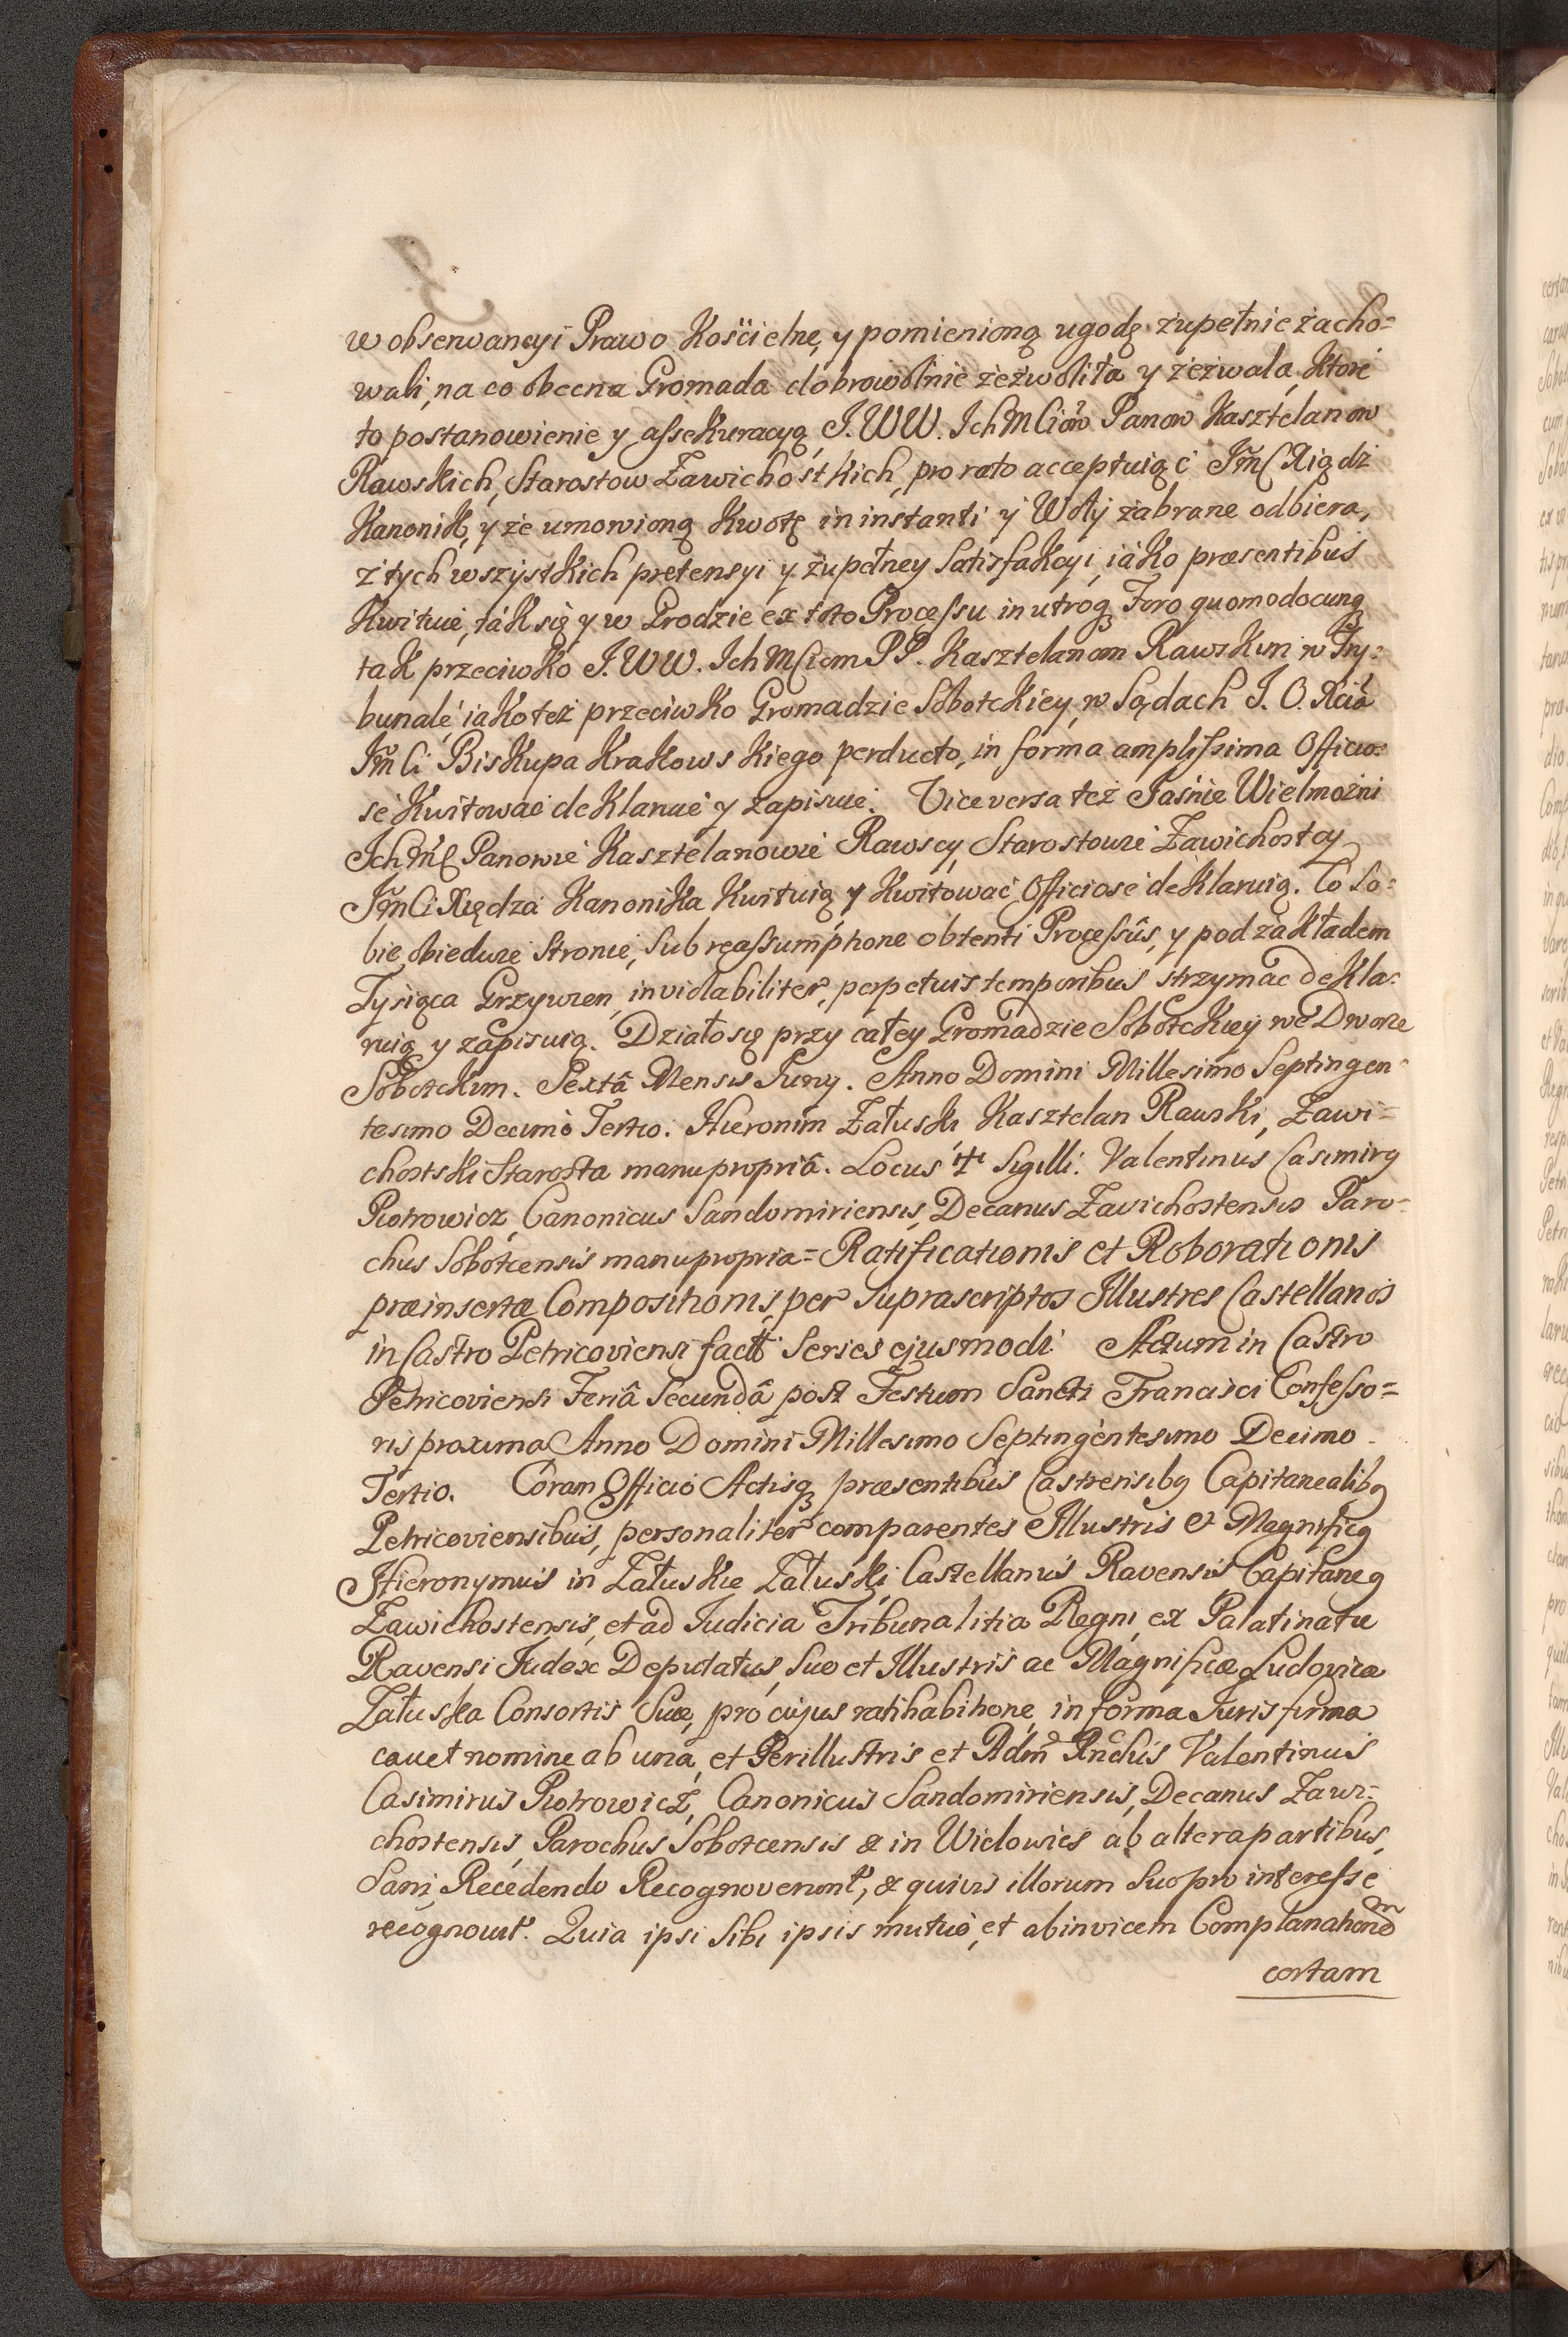 w obserwancyi Prawo Kościelne, y pomienioną ugodę żupełnie żacho=
wali, na co obecna Gromada dobrowolnie żeżwoliła y żeżwala, Ktore
to postanowienie y assekuracyą J. WW. IchMciow Panow Kasztelanow
Rawskich, Starostow Zawichostkich, pro rato acceptuiąc Jm͞C Xiądz
Kanonik, y że umowioną Kwotę in instanti y Woły żabrane odbiera,
z tych wszystkich pretensyi y żupełney Satisfakcyi, iako præsentibus
Kwituie, ták się y w Grodzie ex toto Processu in utroq Foro quomodocunq
tak przeciwko J. WW. IchMciom PP. Kasztelanom Rawskim w Try=
bunale, iako też przeciwko Gromadzie Sobotckiey, w Sądach J. O. Xcia
Jm͞Ci Biskupa Krakowskiego perducto, in forma amplissima Officio=
se Kwitować deklaruie y zapisuie. Vice versa też Jaśnie Wielmożni
Ich Mc Panowie Kasztelanowie Rawscy, Starostowie Zawichostcy
Jm͞Ci Xiędza Kanonika Kwituią y Kwitować Officiose deklaruią. To So=
bie obiedwie Stronie, Sub reassumptione obtenti Processûs, y pod zakładem
Tysiąca Grzywien, inviolabiliter, perpetuis temporibus strzymac dekla=
ruią y zapisuią. Działo się przy całey Gromadzie Sobotckiey we Dworze
Sobotckim. Sextâ Mensis Juny. Anno Domini Millesimo Septingen=
tesimo Decimo Tertio. Hieronim Załuski Kasztelan Rawski, Zawi=
chostski Starosta manu propriâ. Locus ☩ Sigilli. Valentinus Casimirg
Piotrowicz Canonicus Sandomiriensis, Decanus Zawichostensis Paro=
chus Sobotcensis manu propria = Ratificationis et Roborationis
præinsertæ Compositionis, per Suprascriptos Illustres Castellanos
in Castro Petricoviensi Series ejusmodi. Actum in Castro
Petricoviensi Feriâ Secundâ post Festum Sancti Francisci Confesso=
ris proxima Anno Domini Millesimo Septingentesimo Decimo
Tertio. Coram Officio Actisq præsentibus Castrensibg Capitanealibg
Petricoviensibus, personaliter comparentes Illustris et Magnificg
Hieronymus in Załuskie Załuski, Castellanus Ravensis Capitaneg
Zawichostensis, et ad Judicia Tribunalitia Regni, ex Palatinatu
Ravensi Judex Deputatus, Suo et Illustris ac Magnificæ Ludovicæ
Załuska Consortis Suæ, pro cujus ratihabitione, in forma Juris firma
cavet nomine ab una, et Perillustris et Adm͞ R͞ndus Valentinus
Casimirus Piotrowicz, Canonicus Sandomiriensis, Decanus Zawi=
chostensis, Parochus Sobotcensis & in Wielowies ab altera partibus,
Sani, Recedendo Recognoverunt, & quivis illorum Suo pro interesse
recognovit. Quia ipsi Sibi ipsis mutuò, et abinvicem Complanationem
certam